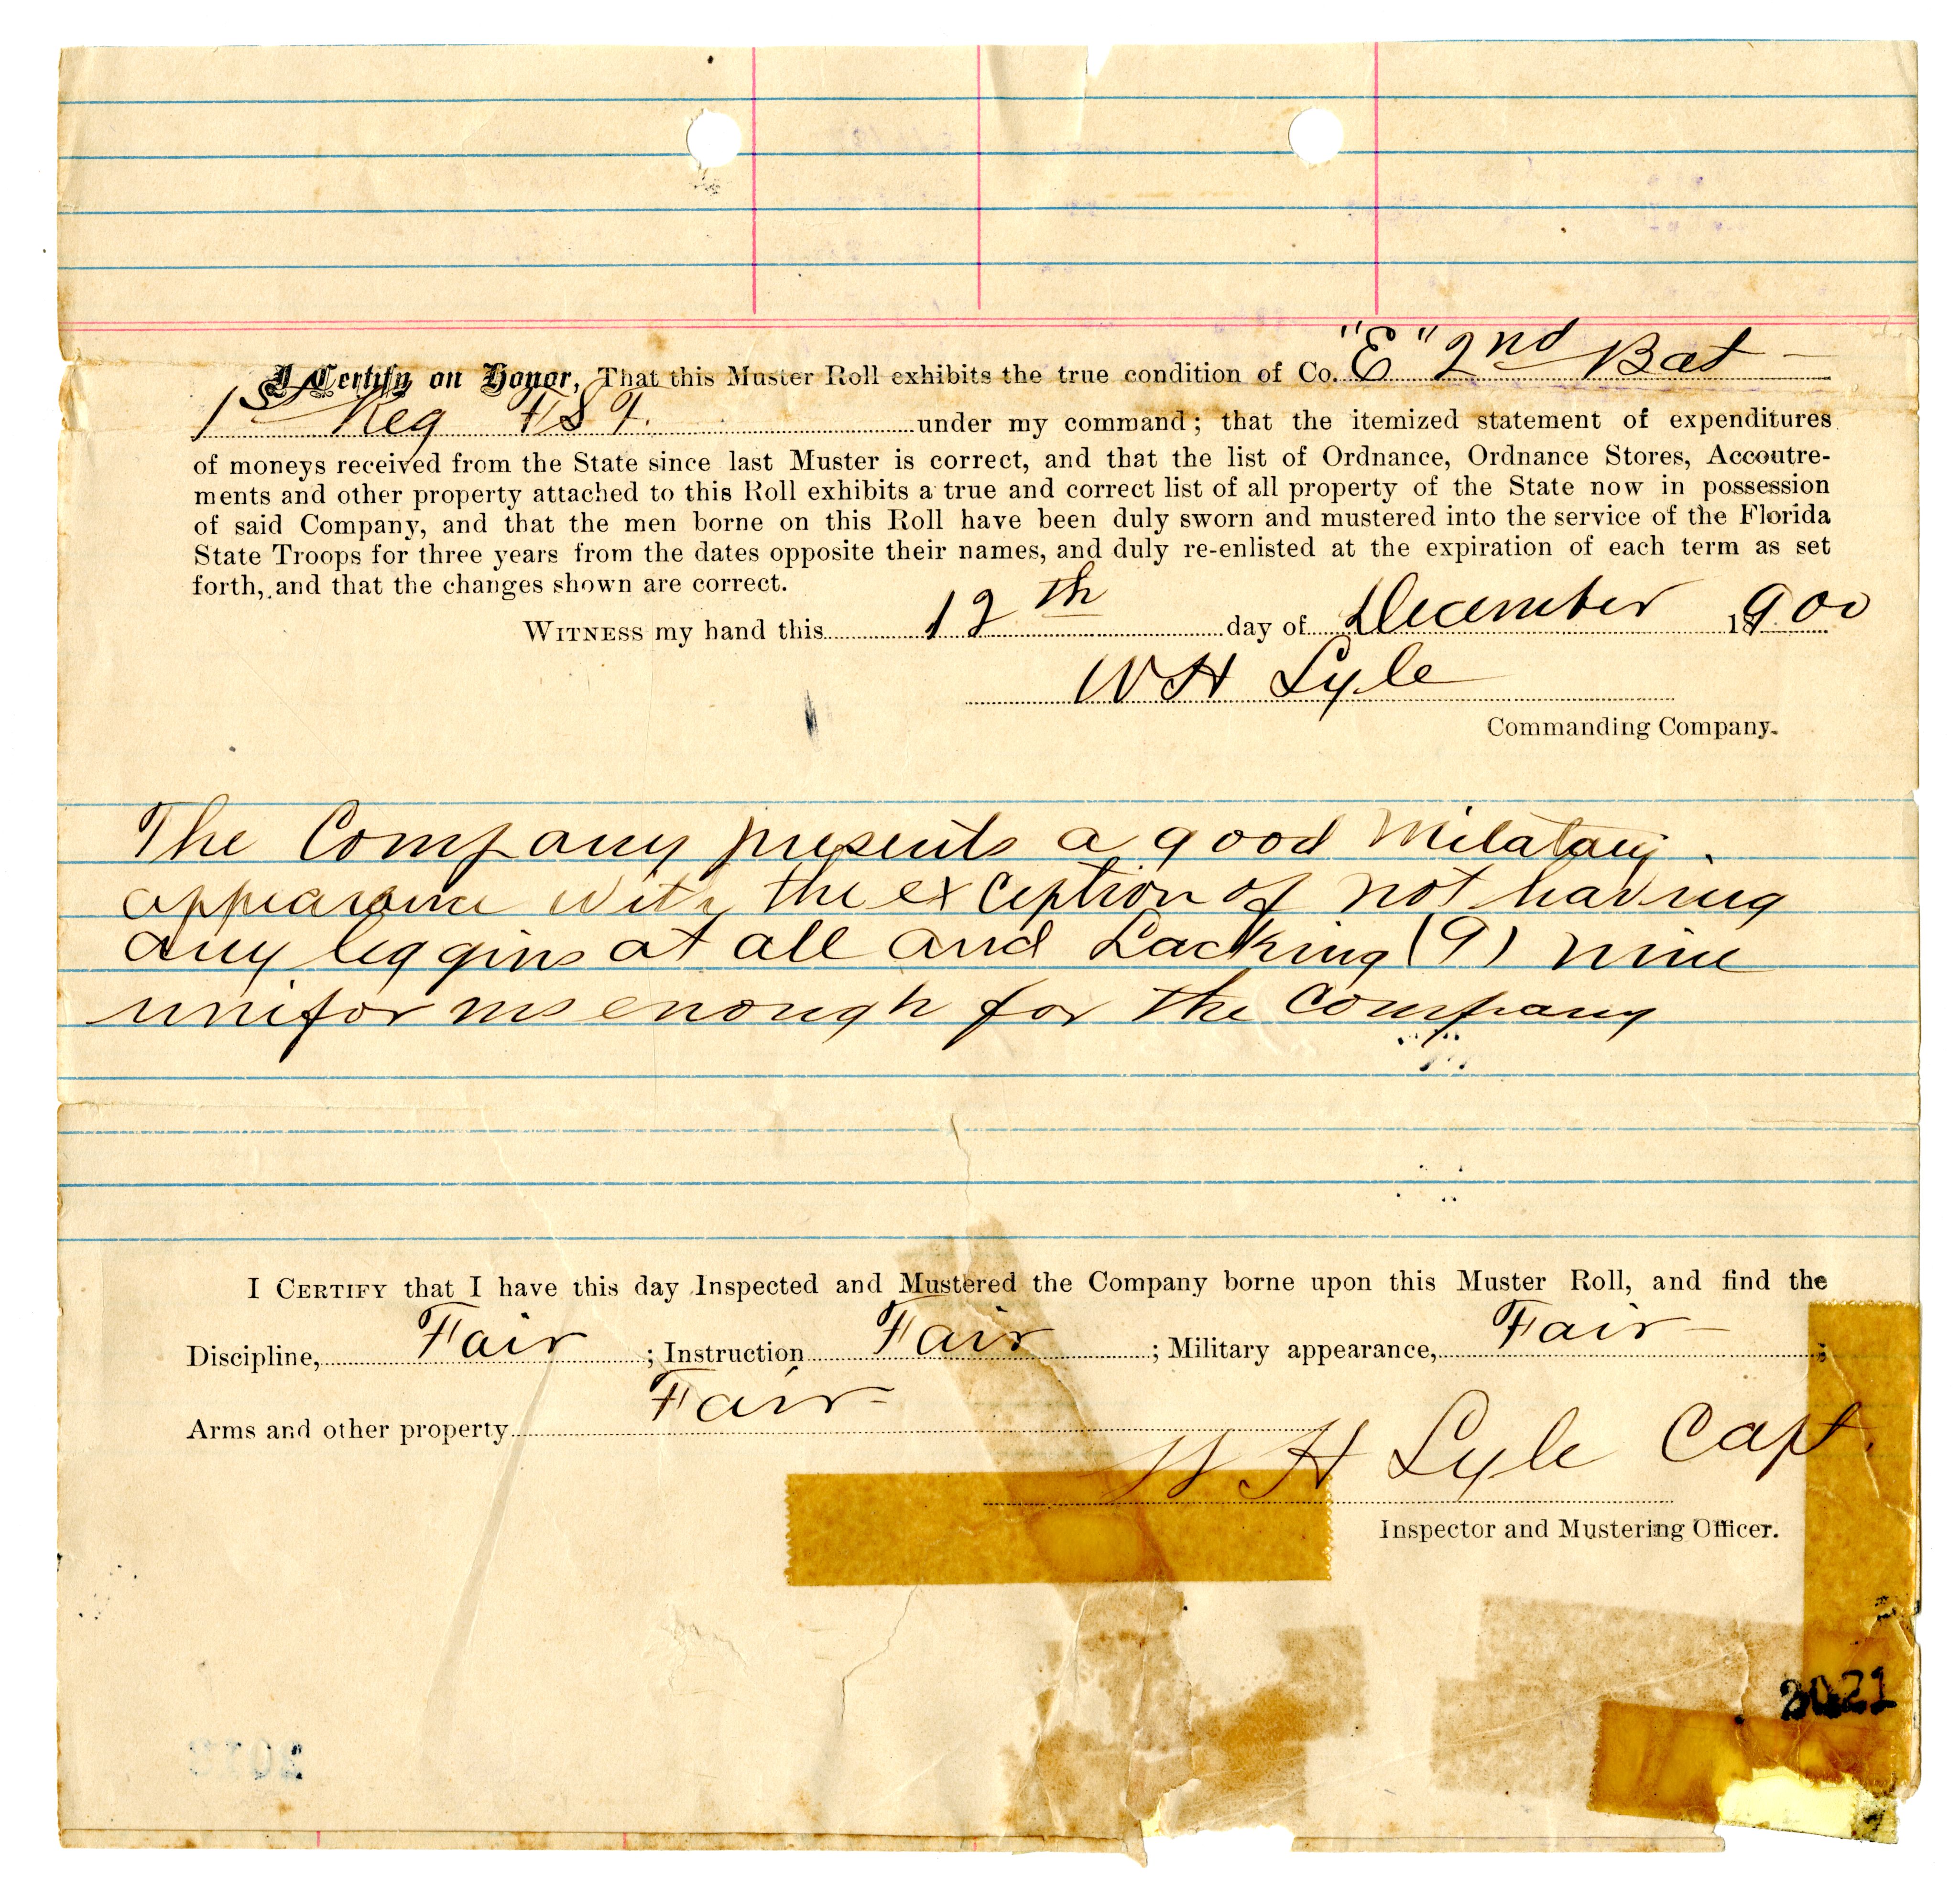 I Certify on Honor, That this Muster Roll exhibits the true condition of Co. "E" 2nd Bat
1st Reg FST. under my command; that the itemized statement of expenditures
of moneys received from the State since last Muster is correct, and that the list of Ordnance, Ordnance Stores, Accoutre-
ments and other property attached to this Roll exhibits a true and correct list of all property of the State now in possession
of said Company, and that the men borne on this Roll have been duly sworn and mustered into the service of the Florida
State Troops for three years from the dates opposite their names, and duly re-enlisted at the expiration of each term as set
forth, and that the changes shown are correct.
WITNESS my hand this 12th day of December 1900
W H Lyle
Commanding Company.
The Company presents a good Milatary
appearance with the exception of not having
any leggins at all and Lacking (9) nine
uniforms enough for the Company
I CERTIFY that I have this day Inspected and Mustered the Company borne upon this Muster Roll, and find the
Discipline, Fair ; Instruction Fair ; Military appearance, Fair ;
Arms and other property Fair
W H Lyle Capt.
Inspector and Mustering Officer.
2021